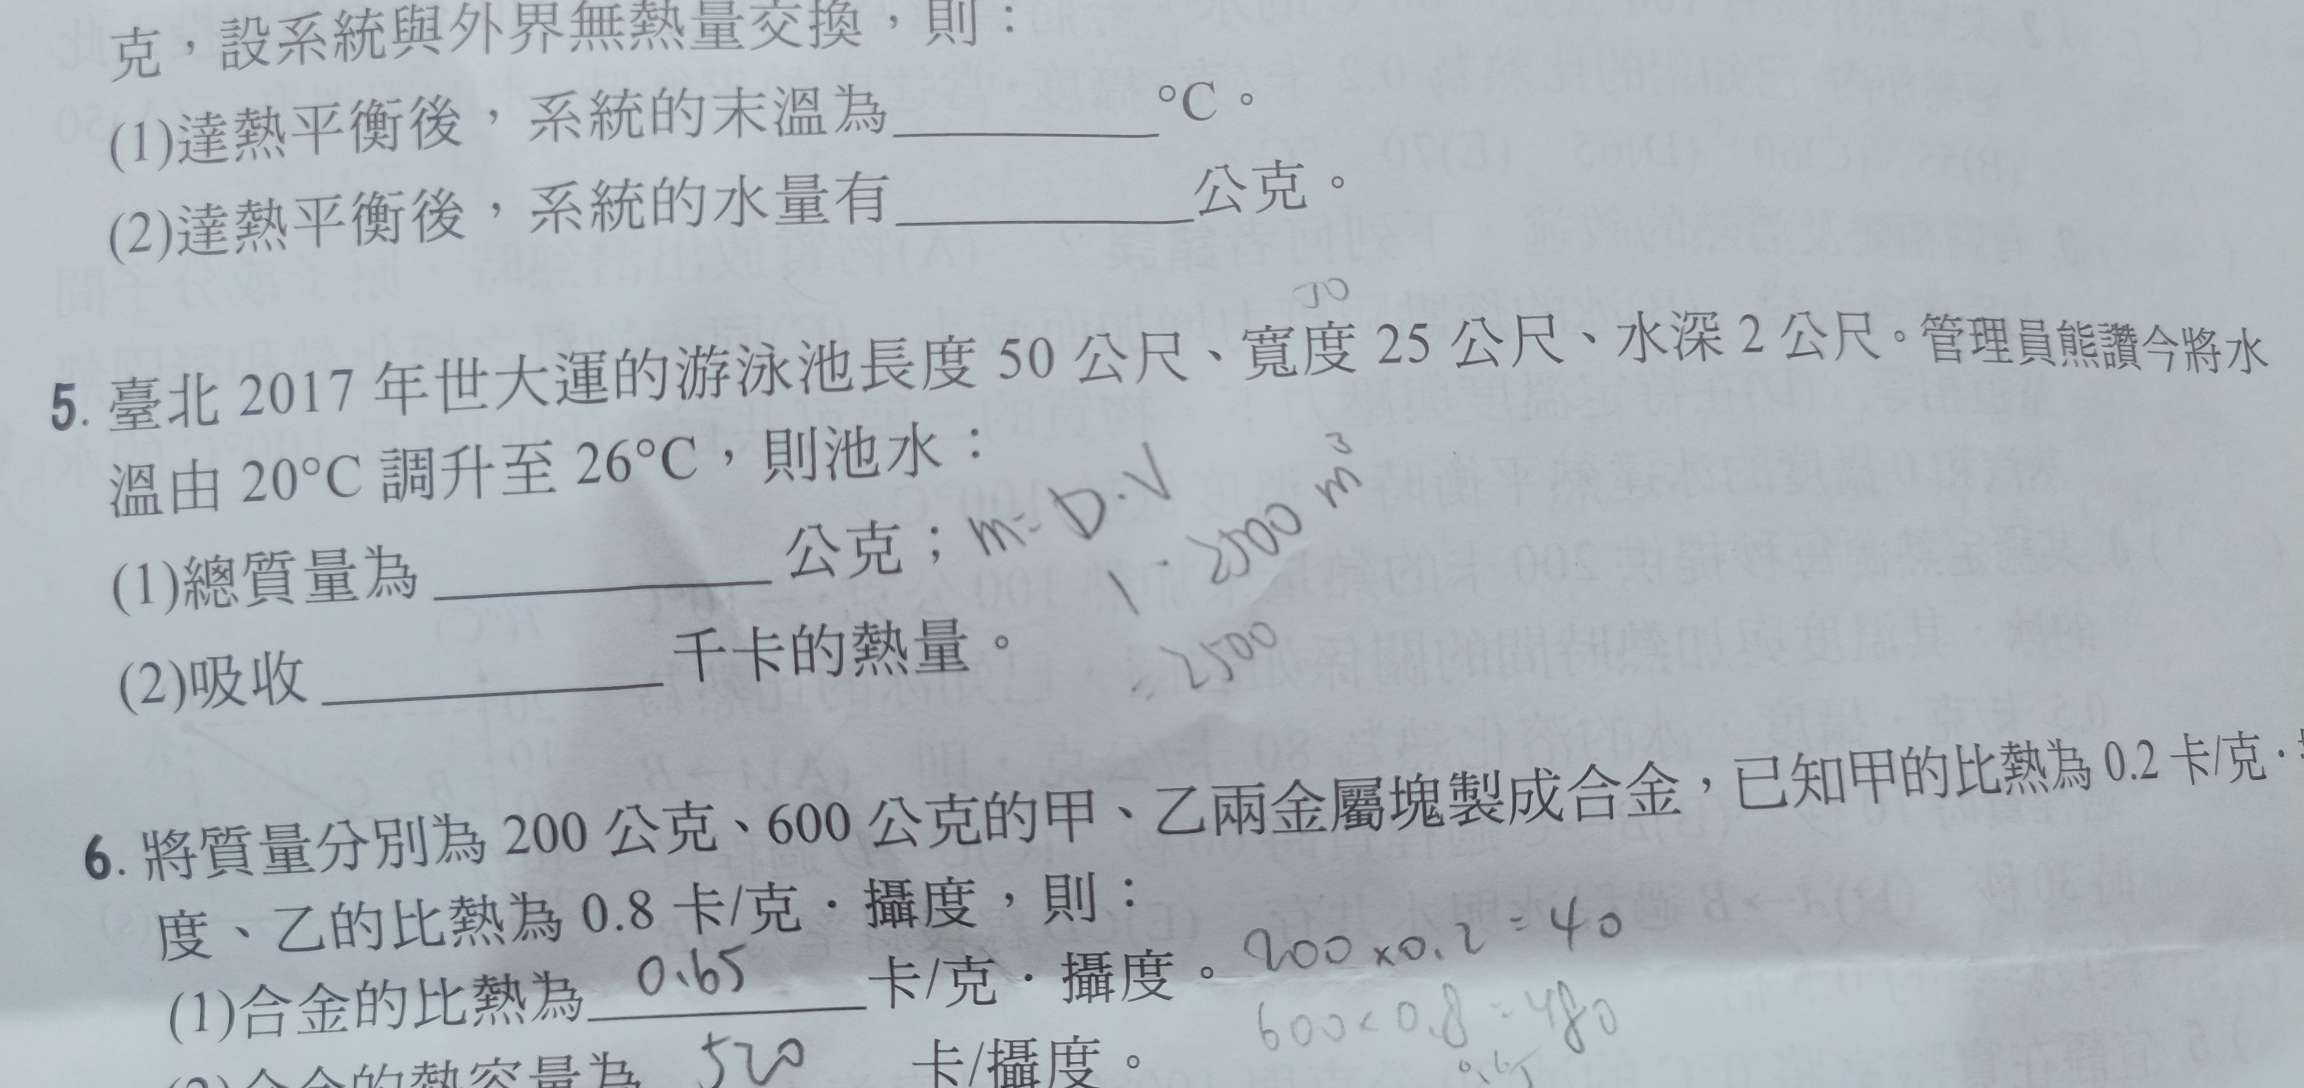 克，設系統與外界無熱量交換，則：
(1)達熱平衡後，系統的末溫為________°C。
(2)達熱平衡後，系統的水量有________公克。
5. 臺北 2017 年世大運的游泳池長度 50 公尺、寬度 25 公尺、水深 2 公尺。管理員熊讚今將水
溫由 20°C 調升至 26°C，則池水：
(1)總質量為________公克；m=D·V
1·2500 m³
=2500
(2)吸收________千卡的熱量。
6. 將質量分別為 200 公克、600 公克的甲、乙兩金屬塊製成合金，已知甲的比熱為 0.2 卡/克·
度、乙的比熱為 0.8 卡/克·攝度，則：
(1)合金的比熱為 0.65 卡/克·攝度。 200×0.2=40
600×0.8=480
(2)合金的熱容量為 520 卡/攝度。
0.65